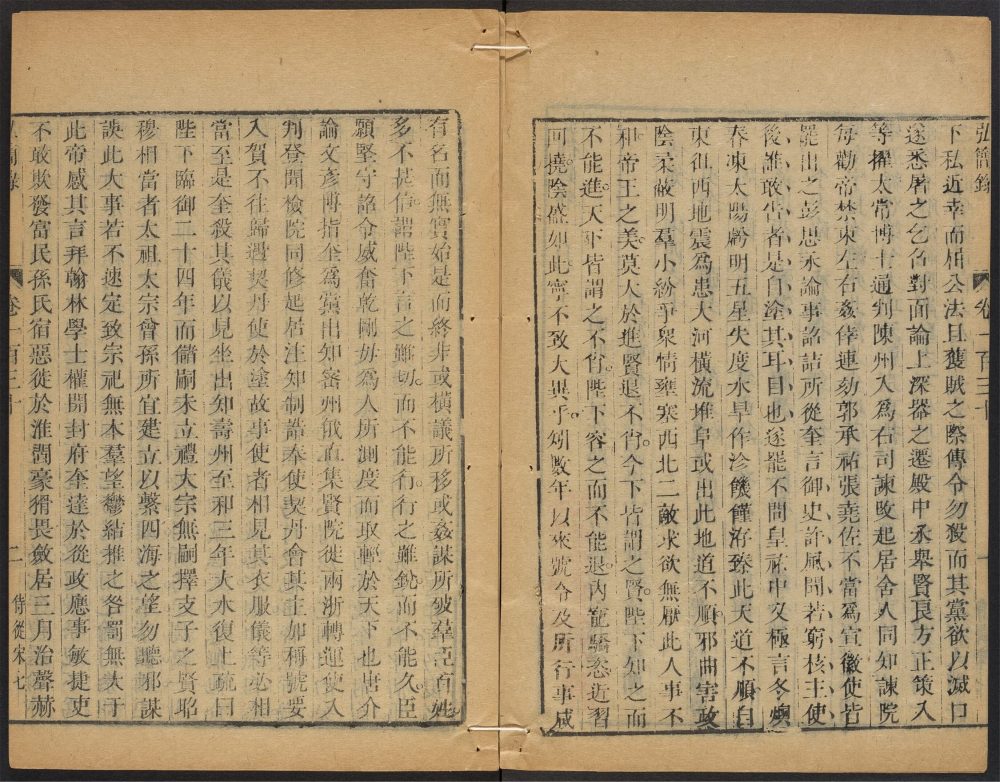 弘簡錄 卷一百三十
下私近幸而撓公法且獲賊之際傳令勿殺而其黨欲以滅口
遂悉屠之乞召對面論上深器之遷殿中丞舉賢良方正策入
等擢太常博士通判陳州入爲右司諫改起居舍人同知諫院
每勸帝禁束左右姦倖連劾郭承祐張堯佐不當爲宣徽使皆
罷出之彭思永論事詔詰所從奎言御史許風聞若窮核主使
後誰敢告者是自塗其耳目也遂罷不問皇祐中又極言冬燠
春凍太陽虧明五星失度水旱作沴饑饉洊臻此天道不順自
東徂西地震爲患大河橫流堆阜或出此地道不順邪曲害政
陰柔蔽明羣小紛爭衆情壅塞西北二敵求欲無厭此人事不
和帝王之美莫大於進賢退不肖今下皆謂之賢陛下知之而
不能進天下皆謂之不肖陛下容之而不能退內寵驕恣近習
回撓陰盛如此寧不致大異乎頻數年以來號令及所行事咸
有名而無實始是而終非或橫議所移或姦謀所破羣臣百姓
多不甚信謂陛下言之雖切而不能行行之雖銳而不能久臣
願堅守詔令威奮乾剛毋爲人所測度而取輕於天下也唐介
論文彥博指奎爲黨出知密州俄直集賢院徙兩浙轉運使入
判登聞檢院同修起居注知制誥奉使契丹會其主加稱號要
入賀不往歸遇契丹使於塗故事使者相見其衣服儀等必相
當至是奎殺其儀以見坐出知壽州至和三年大水復上疏曰
陛下臨御二十四年而儲嗣未立禮大宗無嗣擇支子之賢昭
穆相當者太祖太宗曾孫所宜建立以繫四海之望勿聽邪謀
誤此大事若不速定致宗祀無本羣望鬱結推之咎罰無大于
此帝感其言拜翰林學士權開封府奎達於從政應事敏捷吏
不敢欺發富民孫氏宿惡徙於淮閩豪猾畏斂居三月治聲赫
弘簡錄 卷一百三十 二 侍從宋七